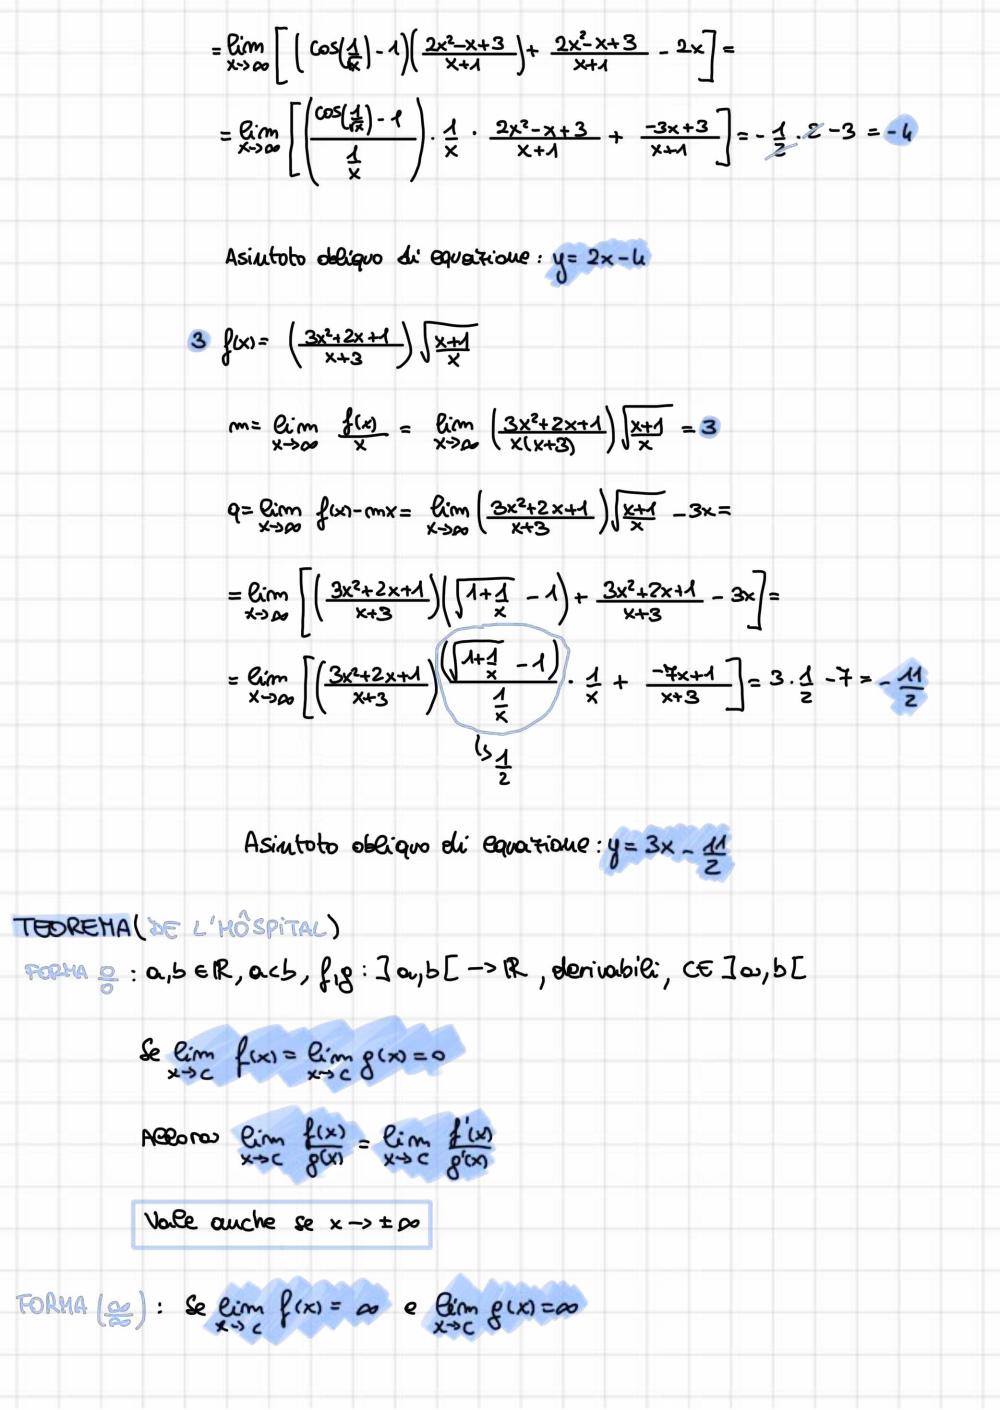 = lim x→∞ [ ( cos(1/√x) - 1 ) ( (2x²-x+3)/(x+1) ) + (2x²-x+3)/(x+1) - 2x ] =
= lim x→∞ [ ( (cos(1/√x) - 1) / (1/x) ) · 1/x · (2x²-x+3)/(x+1) + (-3x+3)/(x+1) ] = - 1/2 · 2 - 3 = -4
Asintoto obliquo di equazione : y = 2x-4
3 f(x) = ( (3x²+2x+1)/(x+3) ) √((x+1)/x)
m = lim x→∞ f(x)/x = lim x→∞ ( (3x²+2x+1)/(x(x+3)) ) √((x+1)/x) = 3
q = lim x→∞ f(x)-mx = lim x→∞ ( (3x²+2x+1)/(x+3) ) √((x+1)/x) - 3x =
= lim x→∞ [ ( (3x²+2x+1)/(x+3) ) ( √(1+1/x) - 1 ) + (3x²+2x+1)/(x+3) - 3x ] =
= lim x→∞ [ ( (3x²+2x+1)/(x+3) ) ( √(1+1/x) - 1 ) / (1/x) · 1/x + (-7x+1)/(x+3) ] = 3 · 1/2 - 7 = - 11/2
↳ 1/2
Asintoto obliquo di equazione : y = 3x - 11/2
TEOREMA ( DE L'HÔSPITAL )
FORMA 0/0 : a,b ∈ ℝ, a<b, f,g : ]a,b[ → ℝ, derivabili, c∈ ]a,b[
Se lim x→c f(x) = lim x→c g(x) = 0
Allora lim x→c f(x)/g(x) = lim x→c f'(x)/g'(x)
Vale anche se x → ±∞
FORMA (∞/∞) : Se lim x→c f(x) = ∞ e lim x→c g(x) = ∞